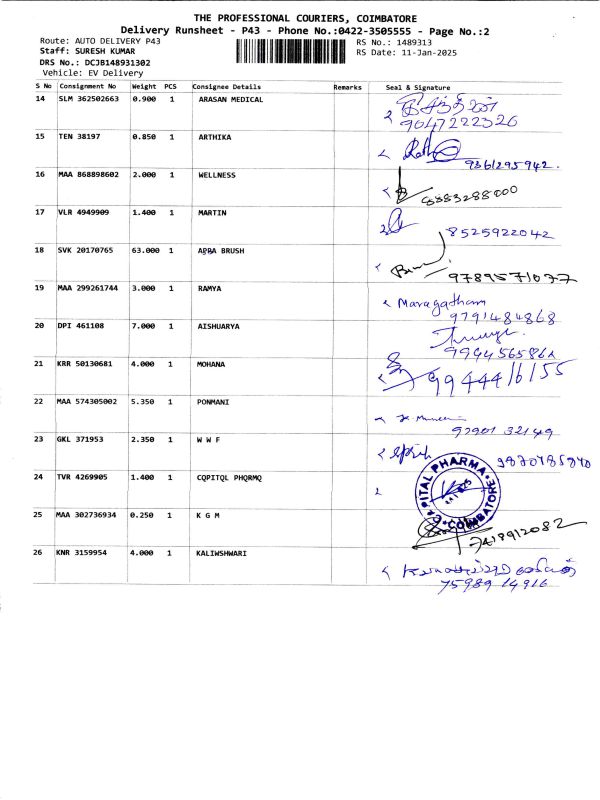 THE PROFESSIONAL COURIERS, COIMBATORE
Delivery Runsheet - P43 - Phone No.:0422-3505555 - Page No.:2
Route: AUTO DELIVERY P43
Staff: SURESH KUMAR
DRS No.: DCJB148931302
Vehicle: EV Delivery
RS No.: 1489313
RS Date: 11-Jan-2025
S No Consignment No Weight PCS Consignee Details Remarks Seal & Signature
14 SLM 362502663 0.900 1 ARASAN MEDICAL
9047222326
15 TEN 38197 0.850 1 ARTHIKA
9361295942.
16 MAA 868898602 2.000 1 WELLNESS
8883288000
17 VLR 4949909 1.400 1 MARTIN
8525922042
18 SVK 20170765 63.000 1 BRUSH
9789571077
19 MAA 299261744 3.000 1 RAMYA
Maragatham
9791484868
20 DPI 461108 7.000 1 AISHUARYA
21 KRR 50130681 4.000 1 MOHANA
9944416155
22 MAA 574305002 5.350 1 PONMANI
97901 32149
23 GKL 371953 2.350 1 W W F
24 TVR 4269905 1.400 1 CQPITQL PHQRMQ
PITAL PHARMA
COIMBATORE
25 MAA 302736934 0.250 1 K G M
7418912082
26 KNR 3159954 4.000 1 KALIWSHWARI
75989 14916